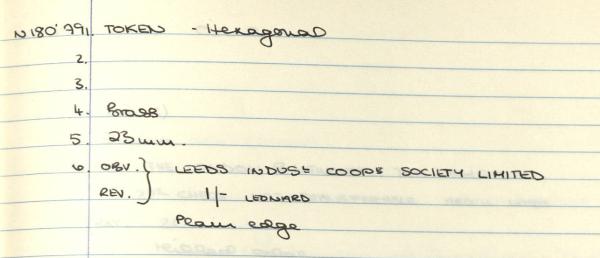 N180'791. TOKEN - Hexagonal
2.
3.
4. Brass
5. 23mm.
6. OBV. } LEEDS INDUSᵗ COOPᵉ SOCIETY LIMITED
REV. } 1/- LEONARD
Plain edge